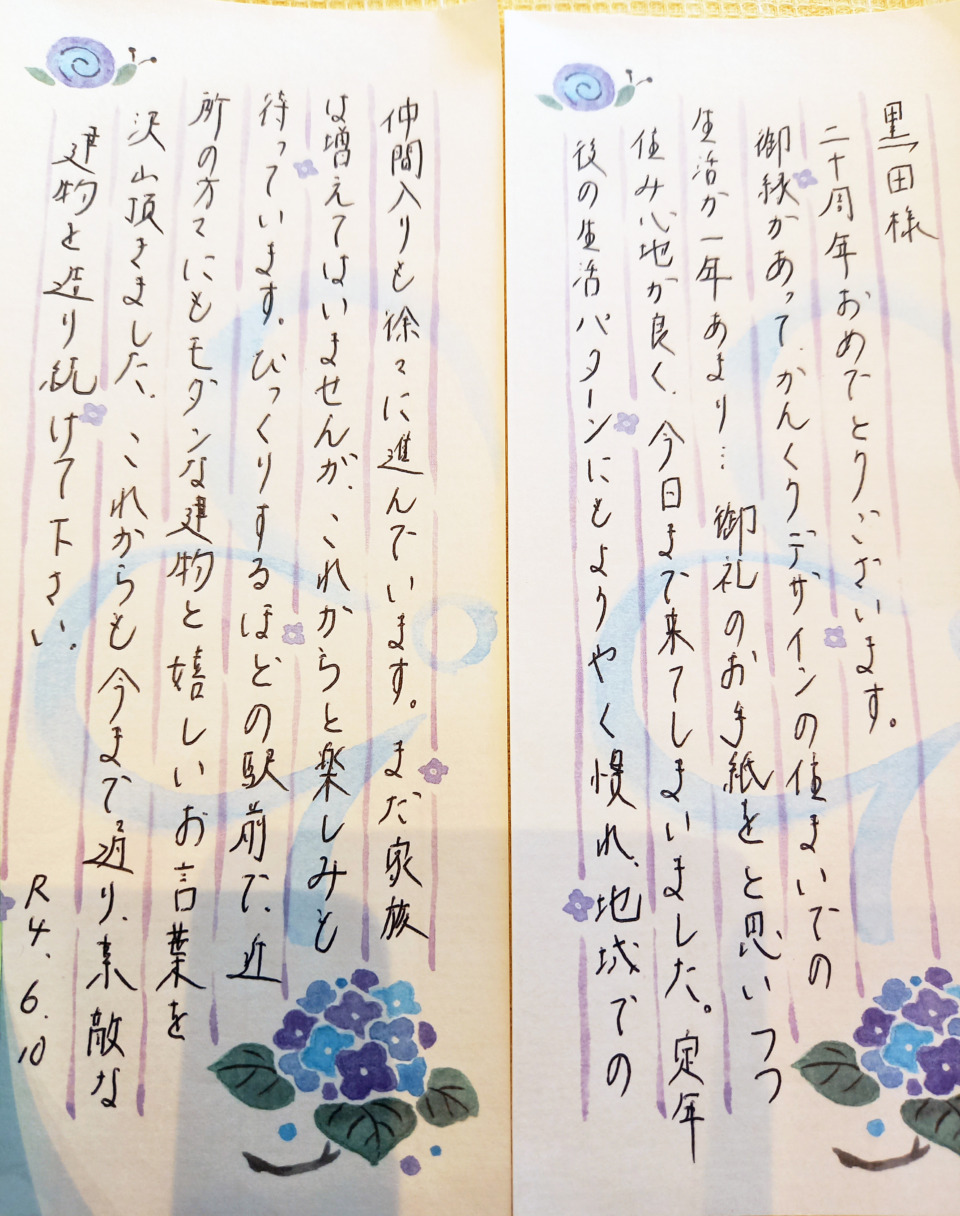 黒田様
二十周年おめでとうございます。
御縁があって、かんくうデザインの住まいでの
生活が一年あまり… 御礼のお手紙をと思いつつ
住み心地が良く、今日まで来てしまいました。定年
後の生活パターンにもようやく慣れ、地域での
仲間入りも徐々に進んでいます。まだ家族
は増えてはいませんが、これからと楽しみも
待っています。びっくりするほどの駅前で、近
所の方々にもモダンな建物と嬉しいお言葉を
沢山頂きました、これからも今まで通り、素敵な
建物を造り続けて下さい。
R4.6.10